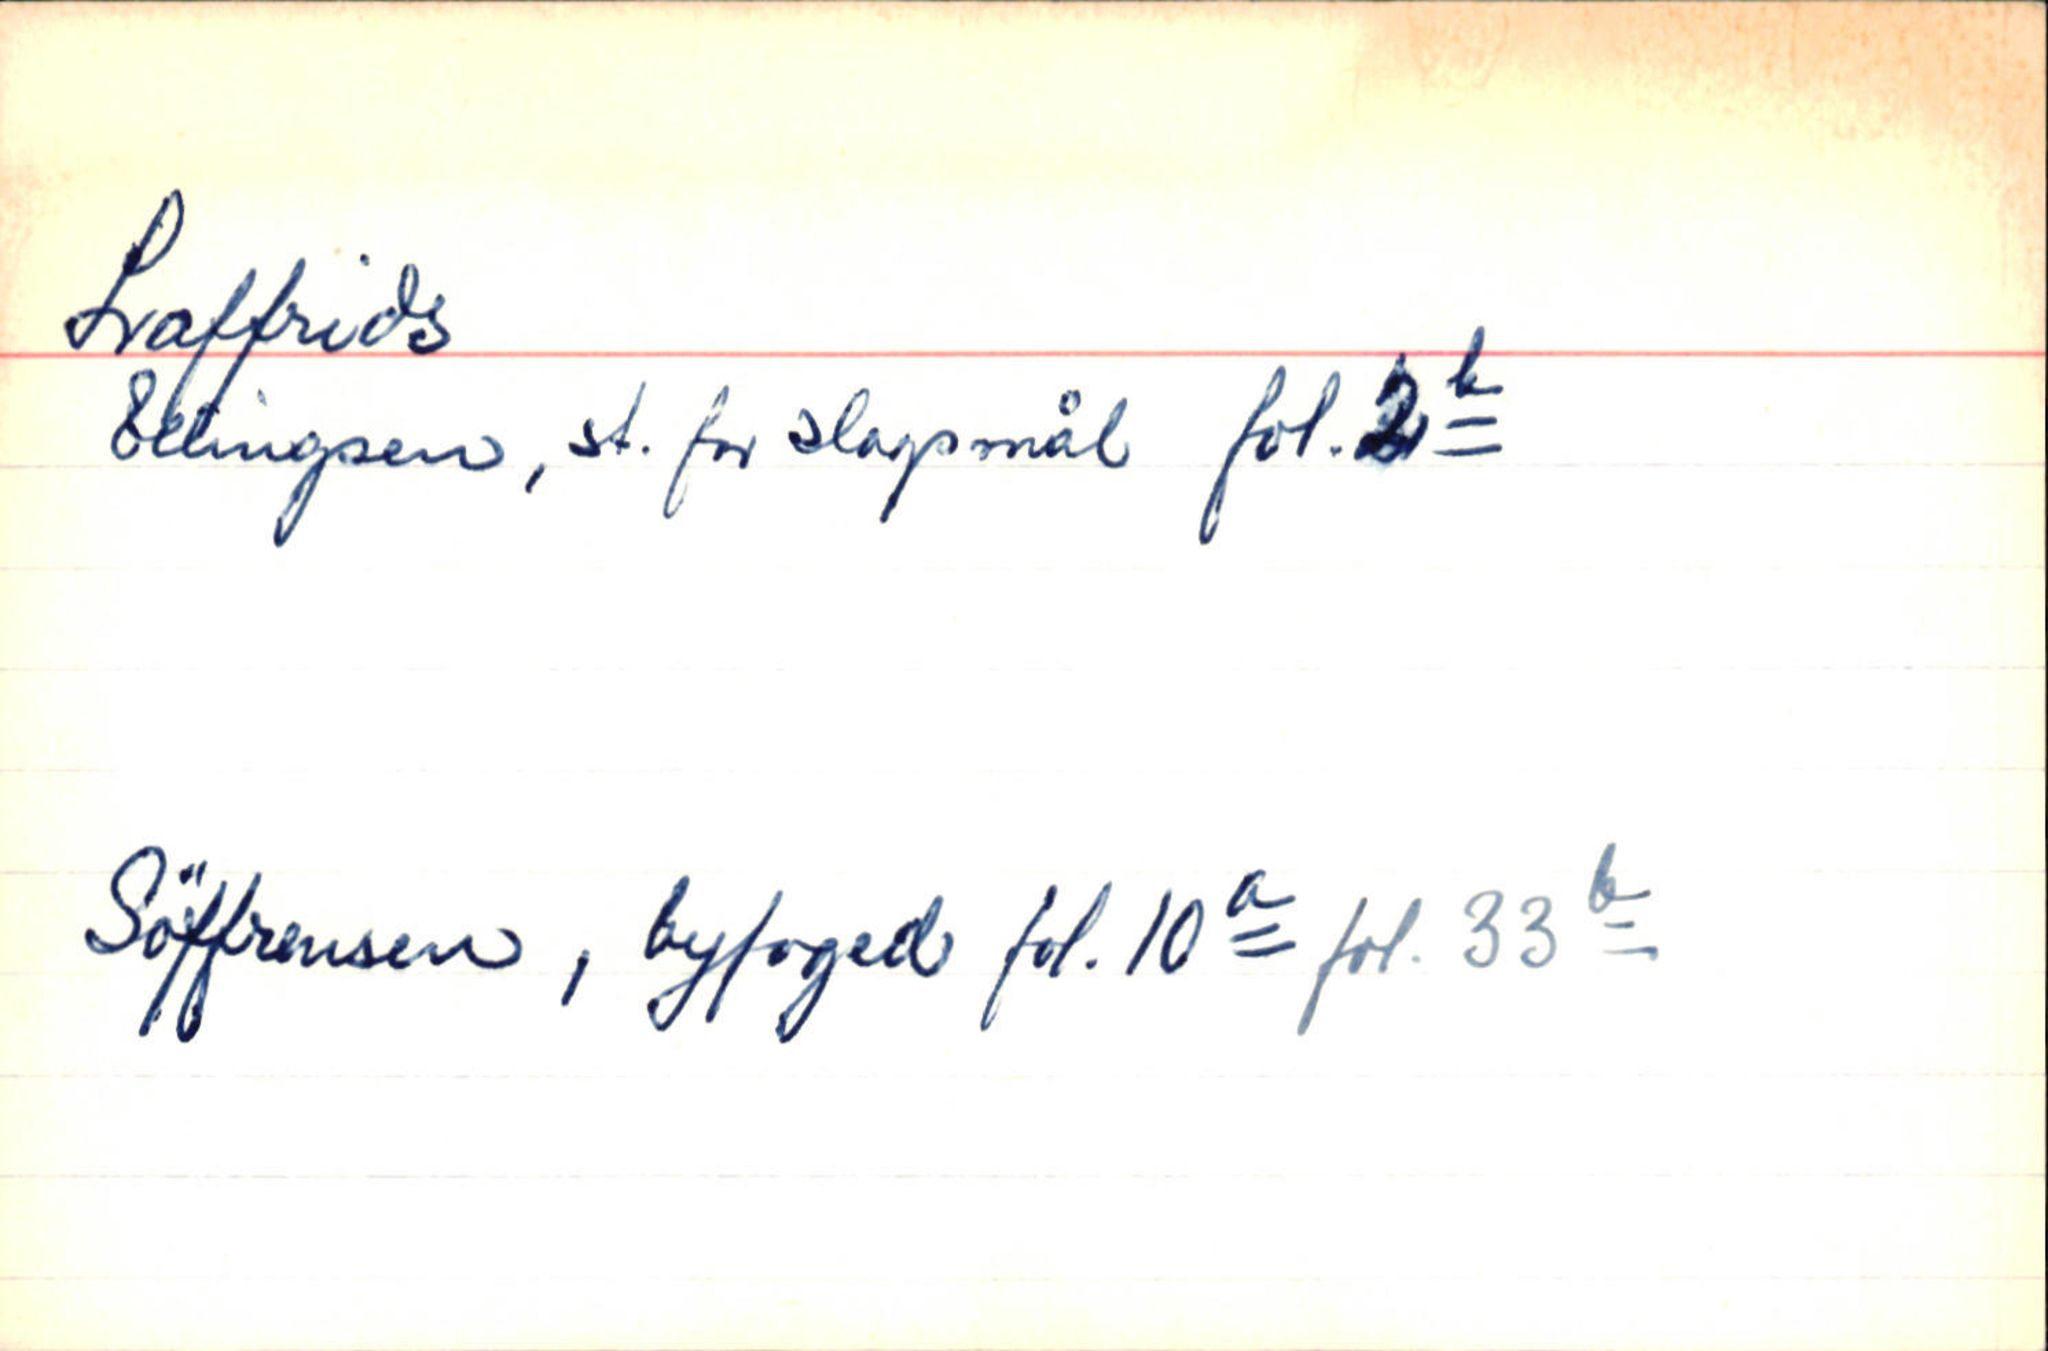 Laffrids
Ellingsen, st. for slagsmål fol. 2b
Söffrensen, byfoged fol. 10a fol. 33b